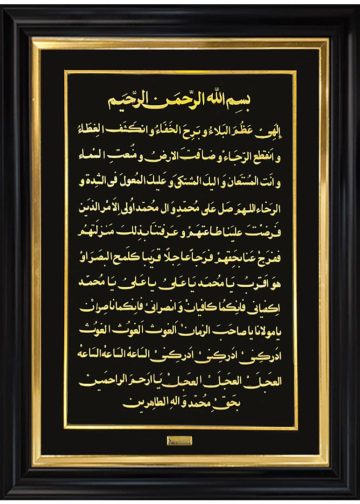 بسم الله الرحمن الرحیم
إلهی عظم البلاء و برح الخفاء و انکشف الغطاء
و انقطع الرجاء و ضاقت الارض و منعت السماء
و انت المستعان و الیک المشتکی و علیک المعول فی الشدة و
الرخاء اللهم صل علی محمد و آل محمد اولی الامر الذین
فرضت علینا طاعتهم و عرفتنا بذلک منزلتهم
ففرج عنا بحقهم فرجا عاجلا قریبا کلمح البصر او
هو اقرب یا محمد یا علی یا علی یا محمد
اکفیانی فانکما کافیان و انصرانی فانکما ناصران
یا مولانا یا صاحب الزمان الغوث الغوث الغوث
ادرکنی ادرکنی ادرکنی الساعة الساعة الساعة
العجل العجل العجل یا ارحم الراحمین
بحق محمد و اله الطاهرین